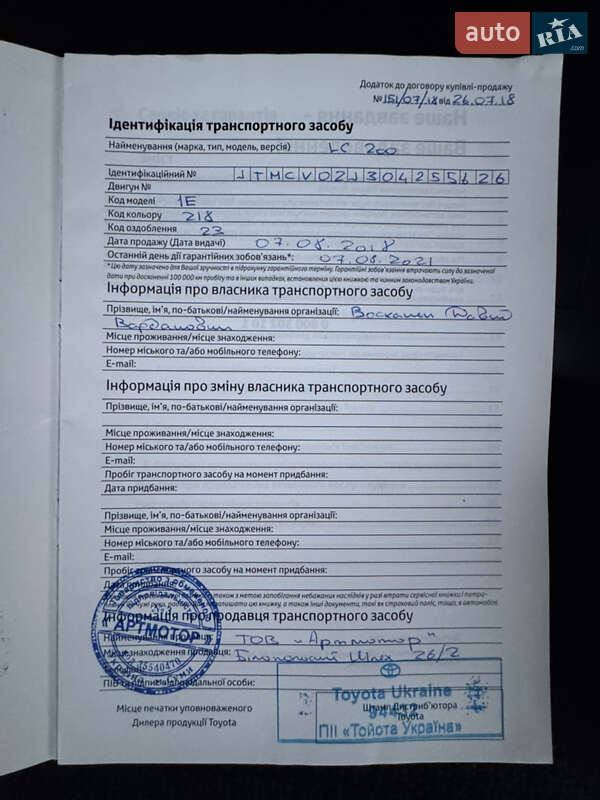 auto RIA .com
Додаток до договору купівлі-продажу
№151/07/18 від 26.07.18
Ідентифікація транспортного засобу
Найменування (марка, тип, модель, версія) LC 200
Ідентифікаційний № JTMCV02J304255626
Двигун №
Код моделі 1E
Код кольору 218
Код оздоблення 23
Дата продажу (Дата видачі) 07.08.2018
Останній день дії гарантійних зобов'язань*: 07.08.2021
* Цю дату зазначено для Вашої зручності в підрахунку гарантійного терміну. Гарантійні зобов'язання втрачають силу до зазначеної
дати при досягненні 100 000 км пробігу та в інших випадках, встановлених цією книжкою та чинним законодавством України.
Інформація про власника транспортного засобу
Прізвище, ім'я, по-батькові/найменування організації: Воскаnян Давід
Варданович
Місце проживання/місце знаходження:
Номер міського та/або мобільного телефону:
E-mail:
Інформація про зміну власника транспортного засобу
Прізвище, ім'я, по-батькові/найменування організації:
Місце проживання/місце знаходження:
Номер міського та/або мобільного телефону:
E-mail:
Пробіг транспортного засобу на момент придбання:
Дата придбання:
Прізвище, ім'я, по-батькові/найменування організації:
Місце проживання/місце знаходження:
Номер міського та/або мобільного телефону:
E-mail:
Пробіг транспортного засобу на момент придбання:
Дата
також з метою запобігання небажаних наслідків у разі втрати сервісної книжки і
залишати цю книжку, а також інші документи, такі як страховий поліс, тощо, в автомобілі.
Інформація про продавця транспортного засобу
Найменування продавця: ТОВ "Артмотор"
Місцезнаходження продавця: Білопільський Шлях 26/2
ПІБ та підпис відповідальної особи:
АРТМОТОР
35540470
Toyota Ukraine
94432
ПІІ «Тойота Україна»
Місце печатки уповноваженого
Дилера продукції Toyota
Штамп Дистриб'ютора
Toyota